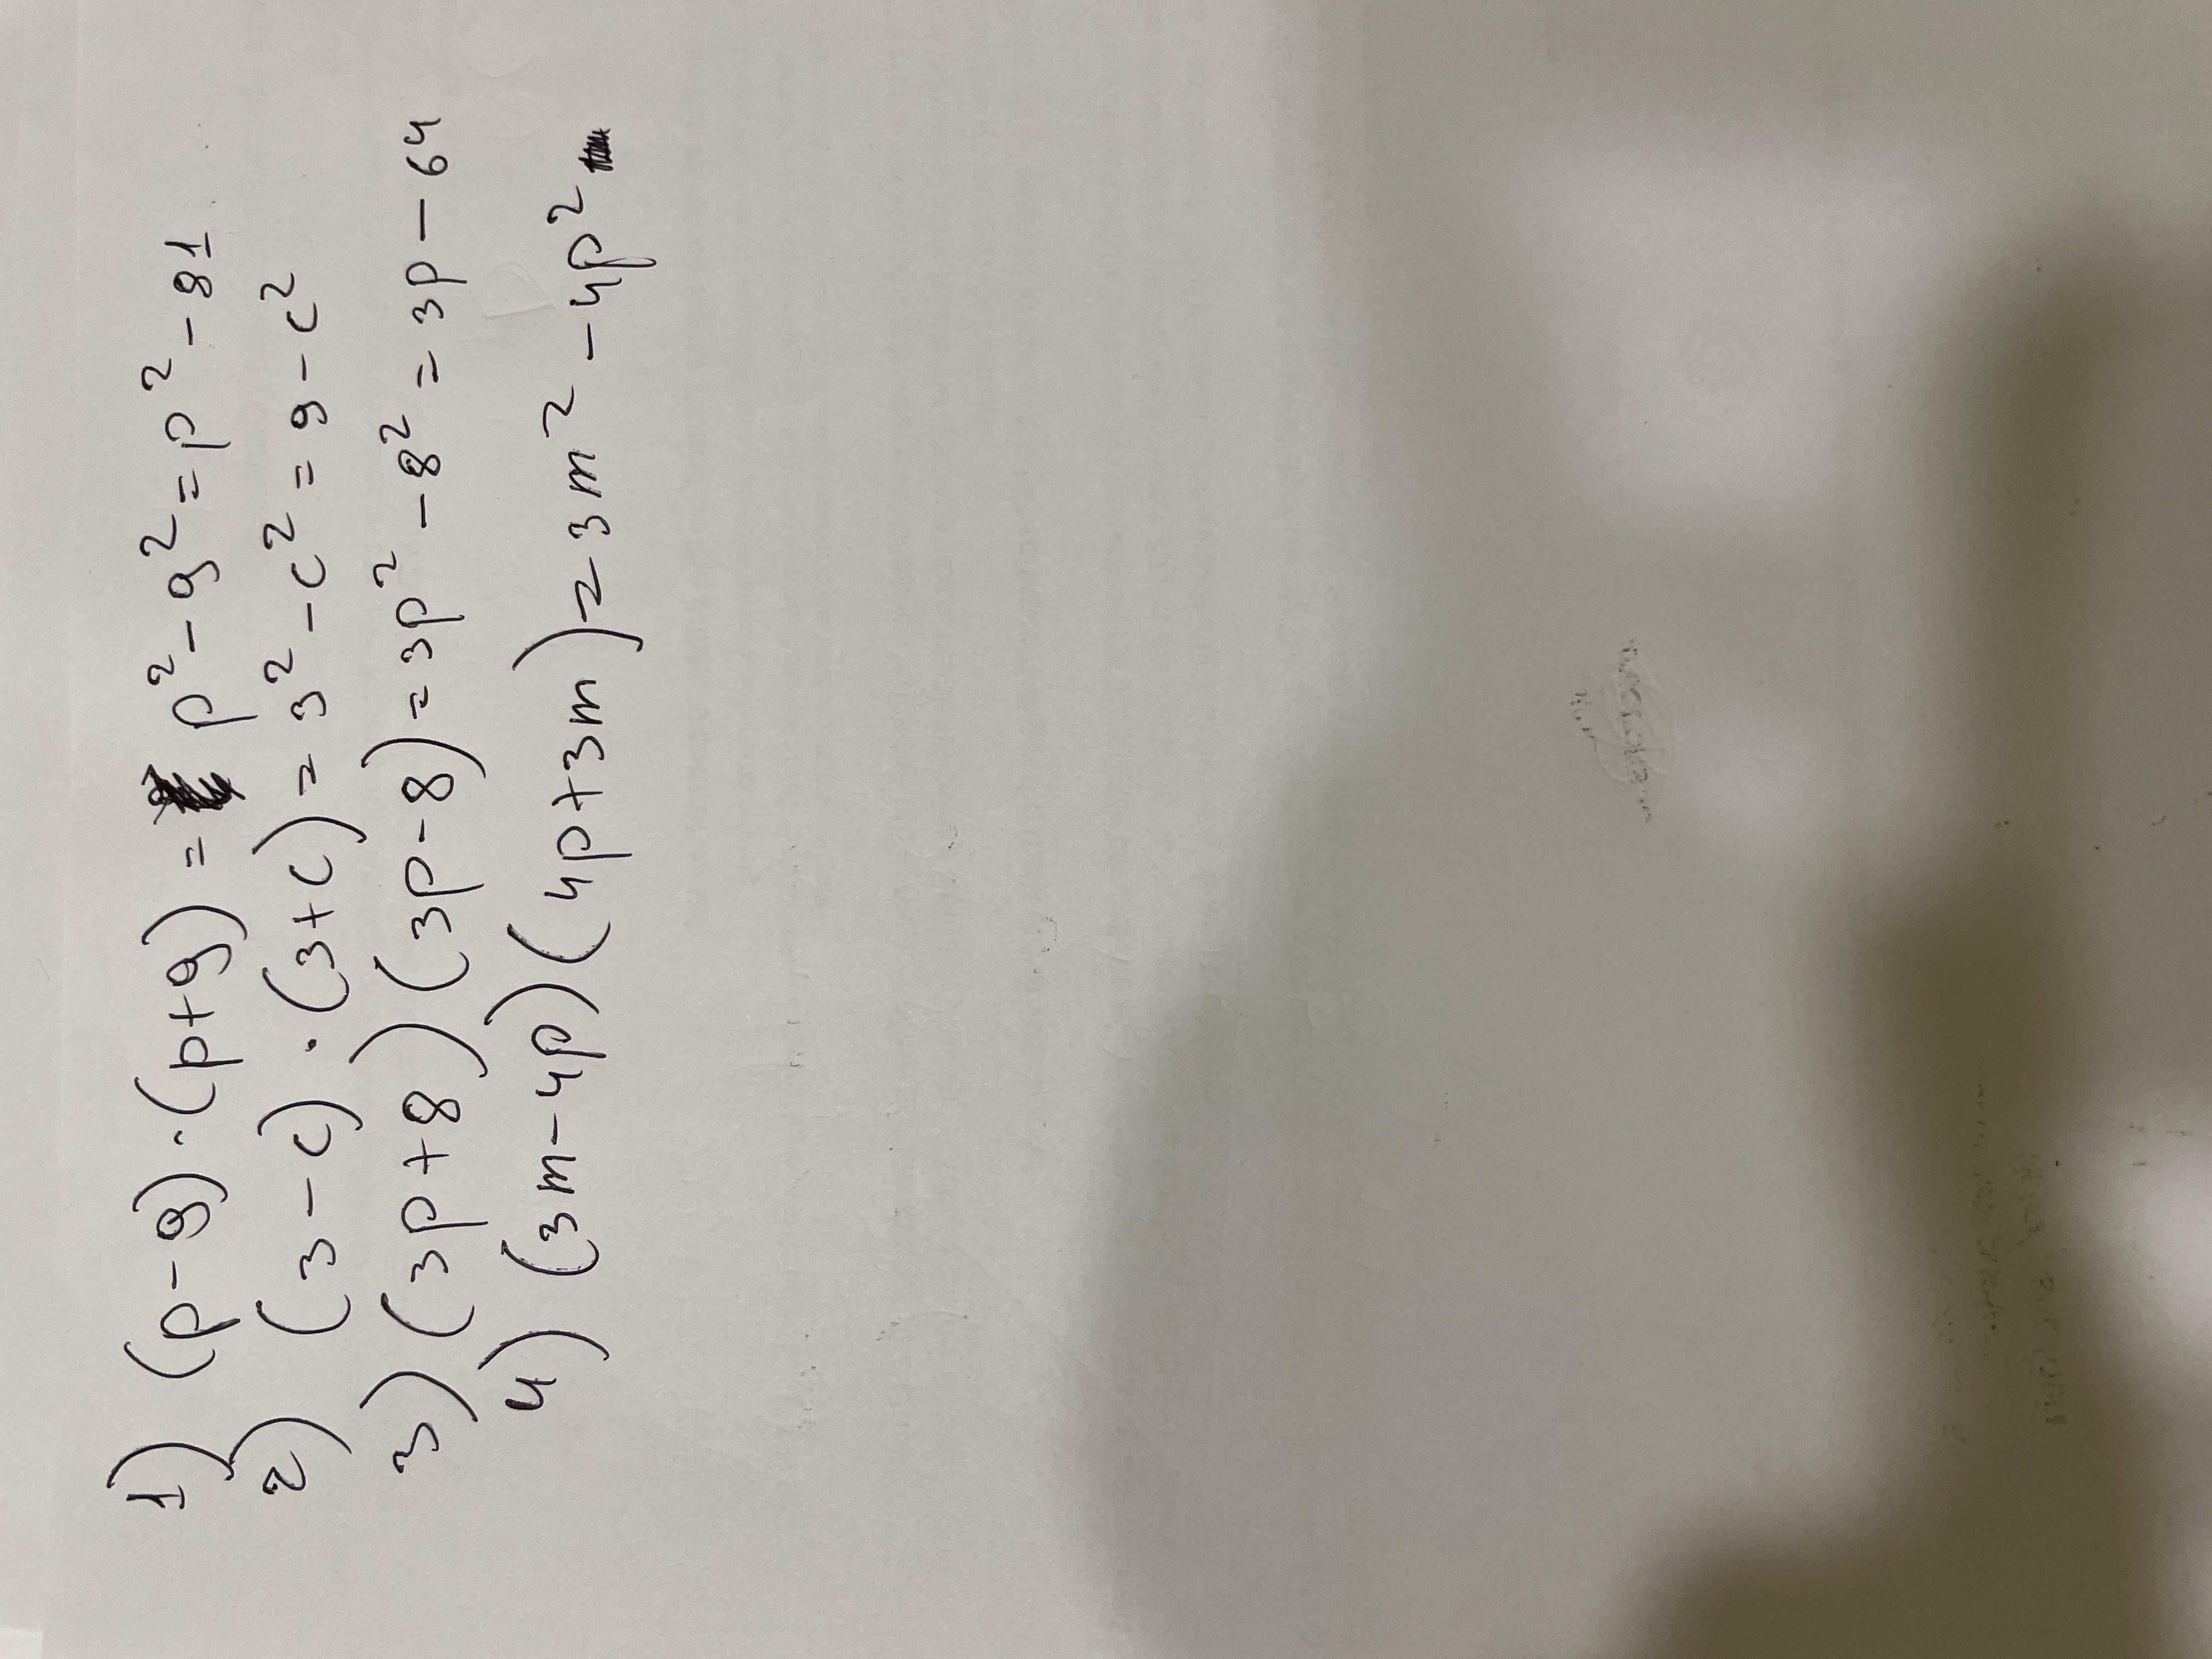 1) (p-9)·(p+9) = p²-9² = p²-81
2) (3-c)·(3+c) = 3²-c² = 9-c²
3) (3p+8)(3p-8) = 3p²-8² = 3p-64
4) (3m-4p)(4p+3m) = 3m²-4p²